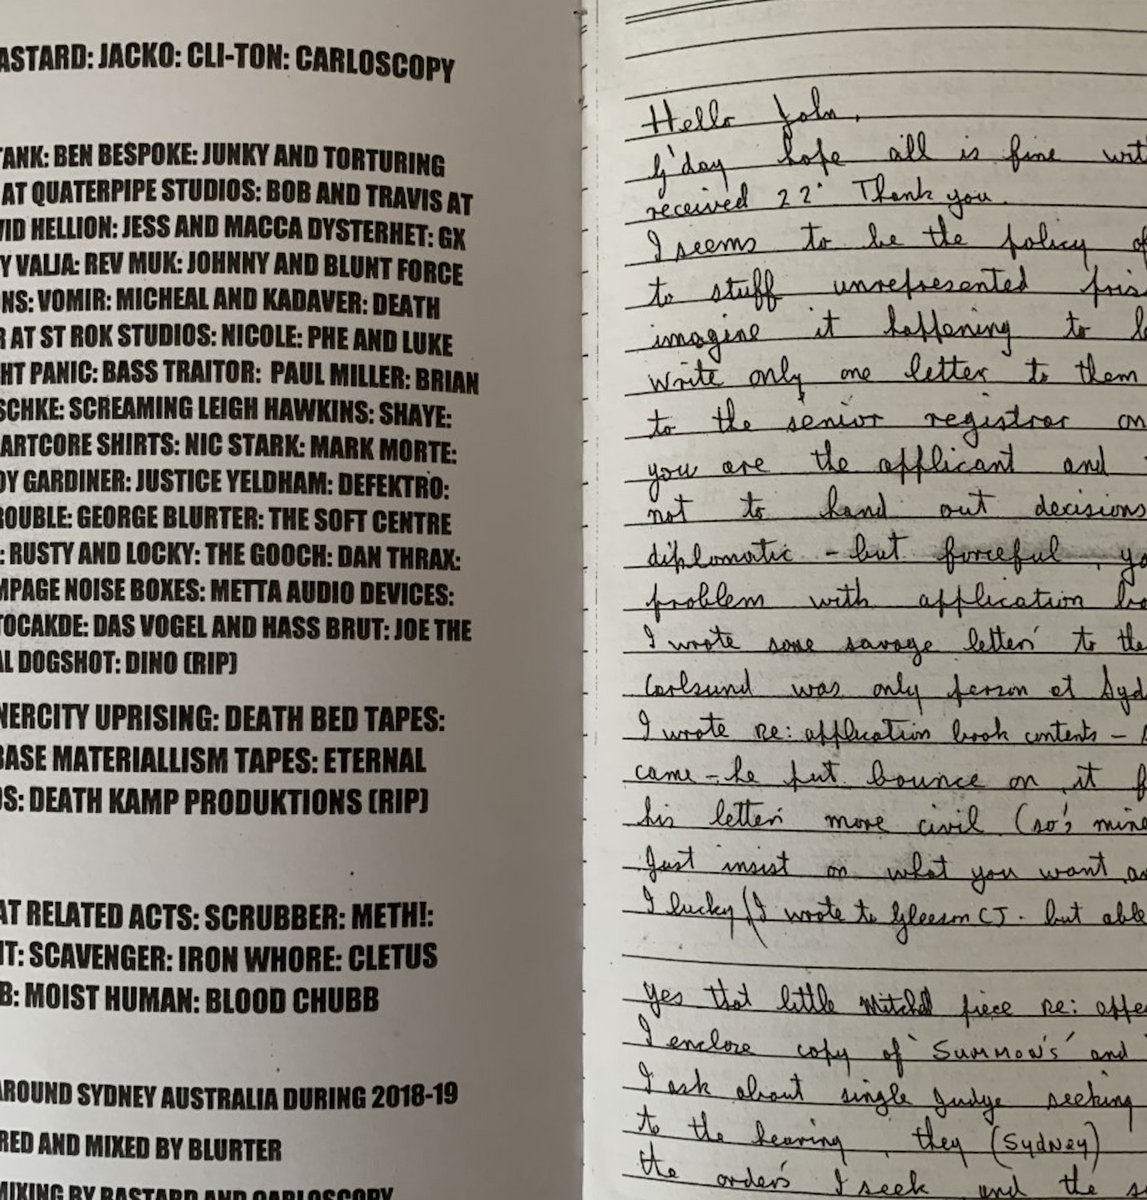 ASTARD: JACKO: CLI-TON: CARLOSCOPY
TANK: BEN BESPOKE: JUNKY AND TORTURING
AT QUATERPIPE STUDIOS: BOB AND TRAVIS AT
VID HELLION: JESS AND MACCA DYSTERHET: GX
Y VALJA: REV MUK: JOHNNY AND BLUNT FORCE
NS: VOMIR: MICHEAL AND KADAVER: DEATH
R AT ST ROK STUDIOS: NICOLE: PHE AND LUKE
HT PANIC: BASS TRAITOR: PAUL MILLER: BRIAN
SCHKE: SCREAMING LEIGH HAWKINS: SHAYE:
ARTCORE SHIRTS: NIC STARK: MARK MORTE:
DY GARDINER: JUSTICE YELDHAM: DEFEKTRO:
ROUBLE: GEORGE BLURTER: THE SOFT CENTRE
: RUSTY AND LOCKY: THE GOOCH: DAN THRAX:
MPAGE NOISE BOXES: METTA AUDIO DEVICES:
TOCAKDE: DAS VOGEL AND HASS BRUT: JOE THE
AL DOGSHOT: DINO (RIP)
NERCITY UPRISING: DEATH BED TAPES:
BASE MATERIALLISM TAPES: ETERNAL
DS: DEATH KAMP PRODUKTIONS (RIP)
AT RELATED ACTS: SCRUBBER: METH!:
IT: SCAVENGER: IRON WHORE: CLETUS
B: MOIST HUMAN: BLOOD CHUBB
AROUND SYDNEY AUSTRALIA DURING 2018-19
RED AND MIXED BY BLURTER
MIXING BY BASTARD AND CARLOSCOPY
Hello John,
G'day hope all is fine wit
received 22' Thank you.
I seems to be the policy of
to stuff unrepresented pris
imagine it happening to
write only one letter to them
to the senior registrar on
you are the applicant and
not to hand out decisions
diplomatic - but forceful, yo
problem with application bo
I wrote some savage letters to the
Carlsund was only person at Syd
I wrote re: application book contents -
came - he put bounce on it f
his letters more civil (so's mine
Just insist on what you want as
I lucky (I wrote to Gleeson CJ. but able
yes that little Mitchell piece re: appe
I enclose copy of 'SUMMON'S' and
I ask about single Judge seeking
to the hearing, they (SYDNEY)
the orders I seek and the s